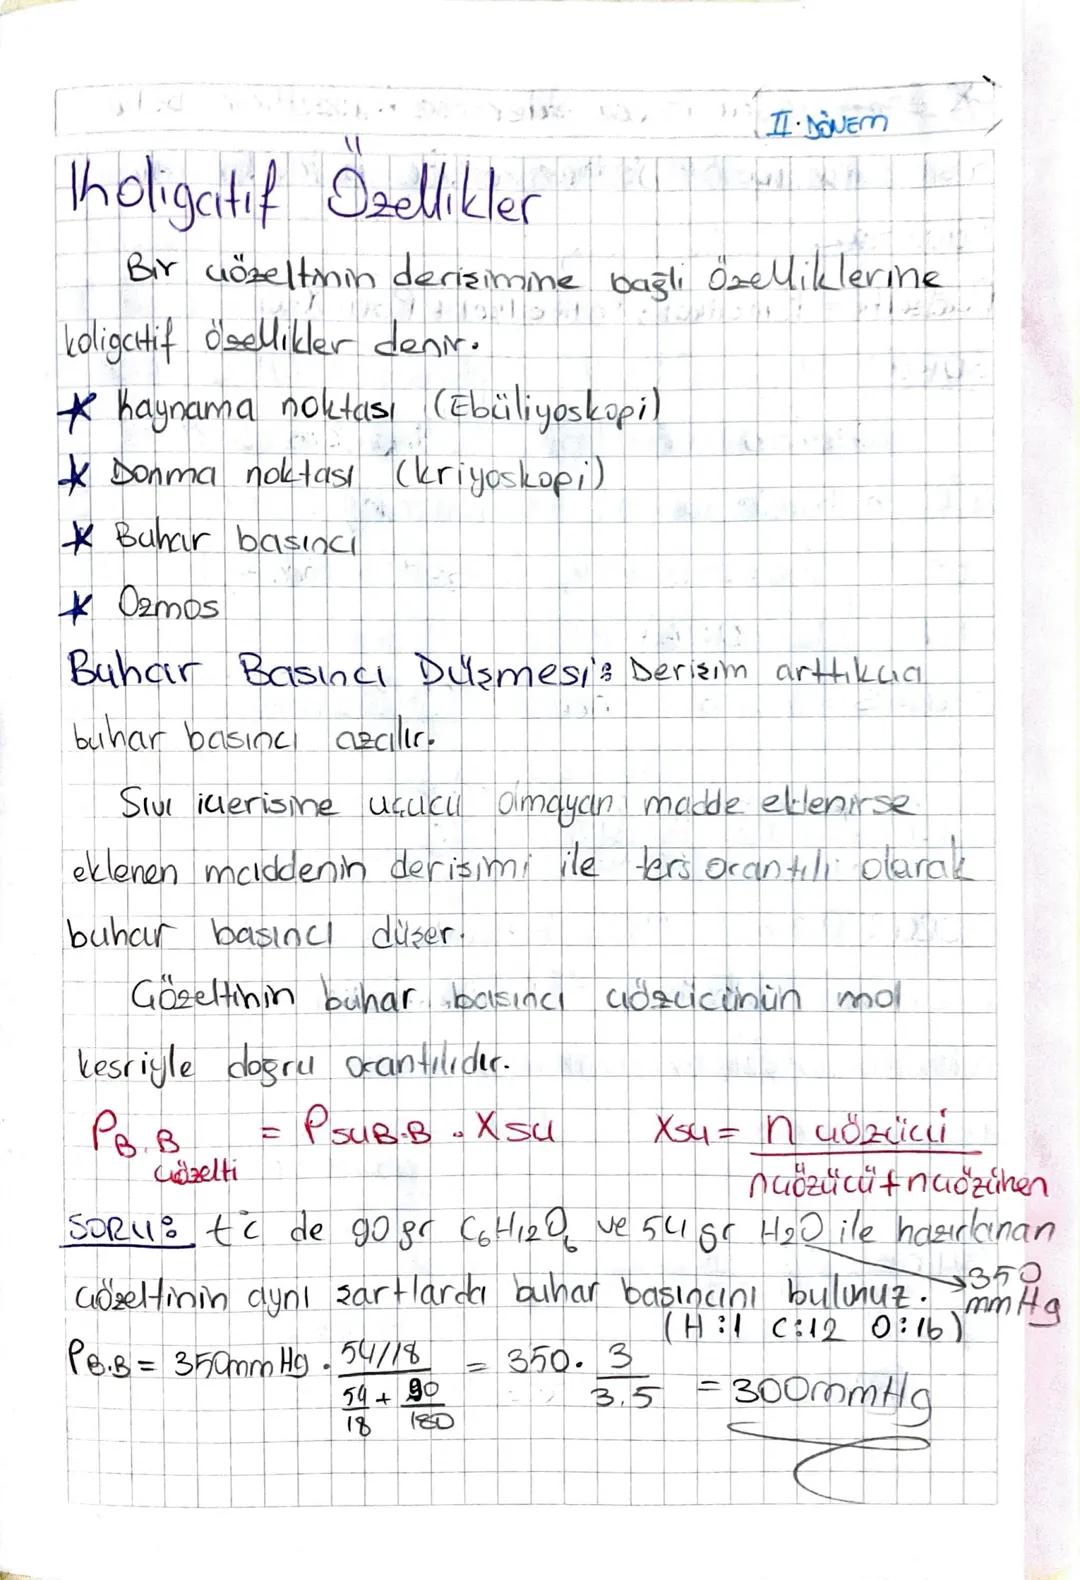 II. DÖNEM
Koligatif Özellikler
Bir çözeltinin derişimine bağlı özelliklerine
koligatif özellikler denir.
* Kaynama noktası (Ebüliyoskopi)
* Donma noktası (kriyoskopi)
* Buhar basıncı
* Ozmos
Buhar Basıncı Düşmesi: Derişim arttıkça
buhar basıncı azalır.
Sıvı içerisine uçucu olmayan madde eklenirse
eklenen maddenin derişimi ile ters orantılı olarak
buhar basıncı düşer.
Çözeltinin buhar basıncı çözücünün mol
kesriyle doğru orantılıdır.
PB.B çözelti = PSUB.B . Xsu Xsu = n çözücü / nçözücü + nçözünen
SORU: t°c de 90 gr C6H12O6 ve 54 gr H2O ile hazırlanan
350 mmHg
çözeltinin aynı şartlarda buhar basıncını bulunuz.
(H:1 C:12 O:16)
PB.B = 350mmHg . 54/18 / 54/18 + 90/180 = 350. 3/3.5 = 300mmHg